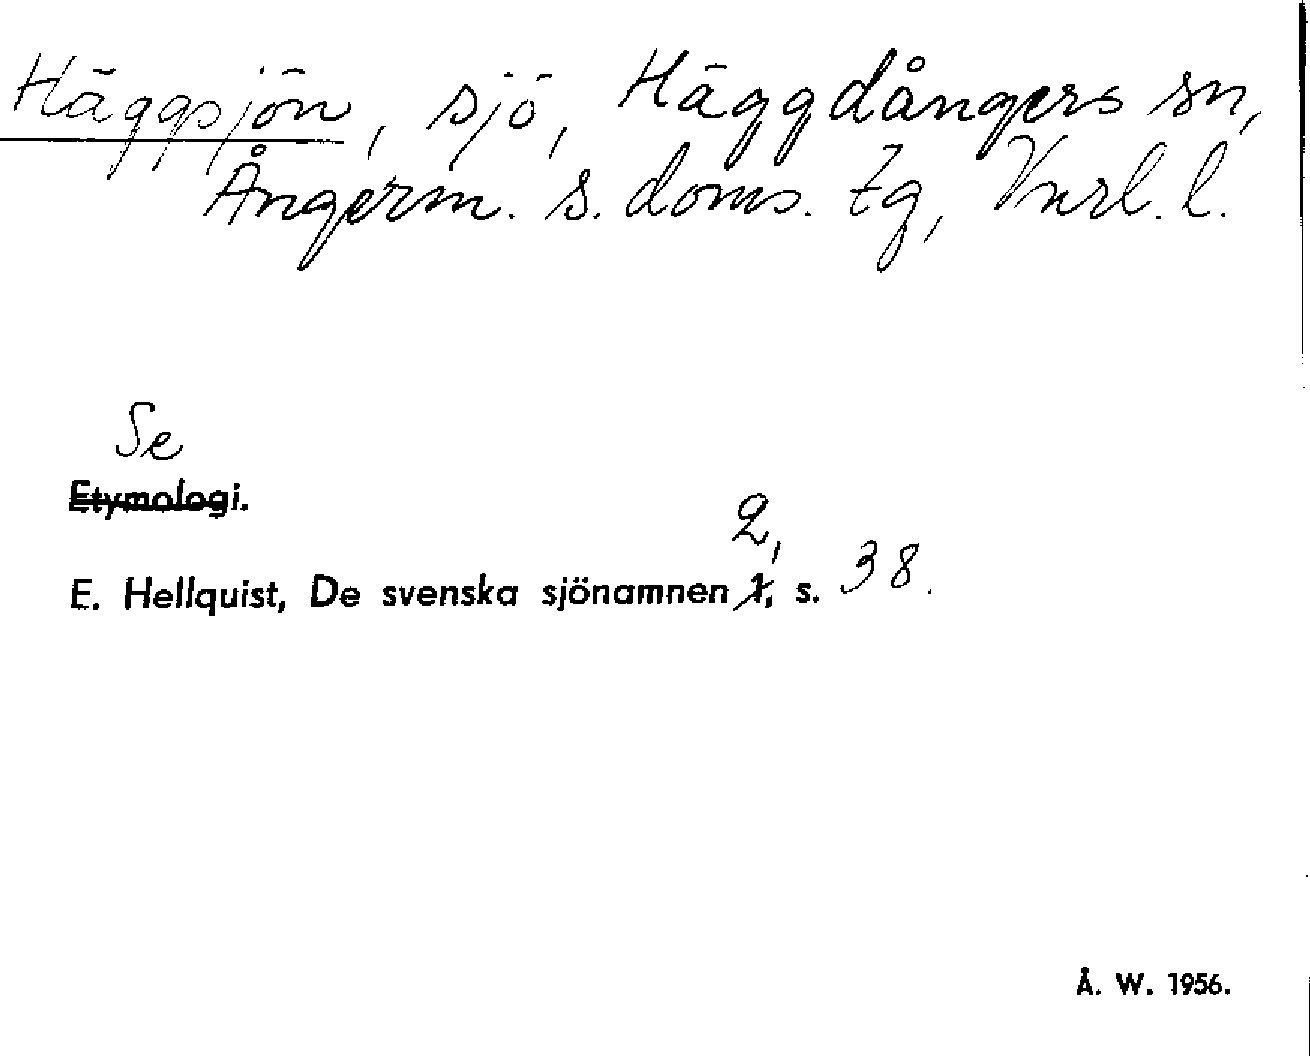 Häggsjön, sjö, Häggdångers sn,
Ångerm. s. doms. tg, Vnrl. l.
Se
Etymologi.
2,
E. Hellquist, De svenska sjönamnen 1, s. 38.
Å. W. 1956.